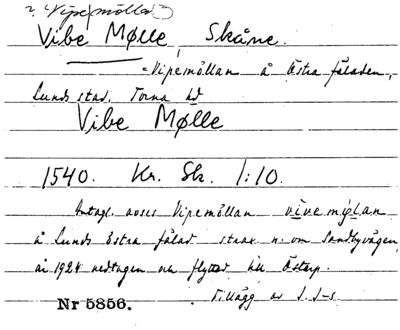 ? (Vipemöllan)
Vibe Mølle, Skåne.
= Vipemöllan å Östra fäladen,
Lunds stad. Torna hd
Vibe Mølle
1540. Kr. Sk. 1:10.
Antagl. avses Vipemöllan vivemølan
å Lunds östra fälad strax n. om Sandbyvägen,
år 1924 nedtagen och flyttad till Östarp.
Tillägg av I. I-s.
Nr 5856.